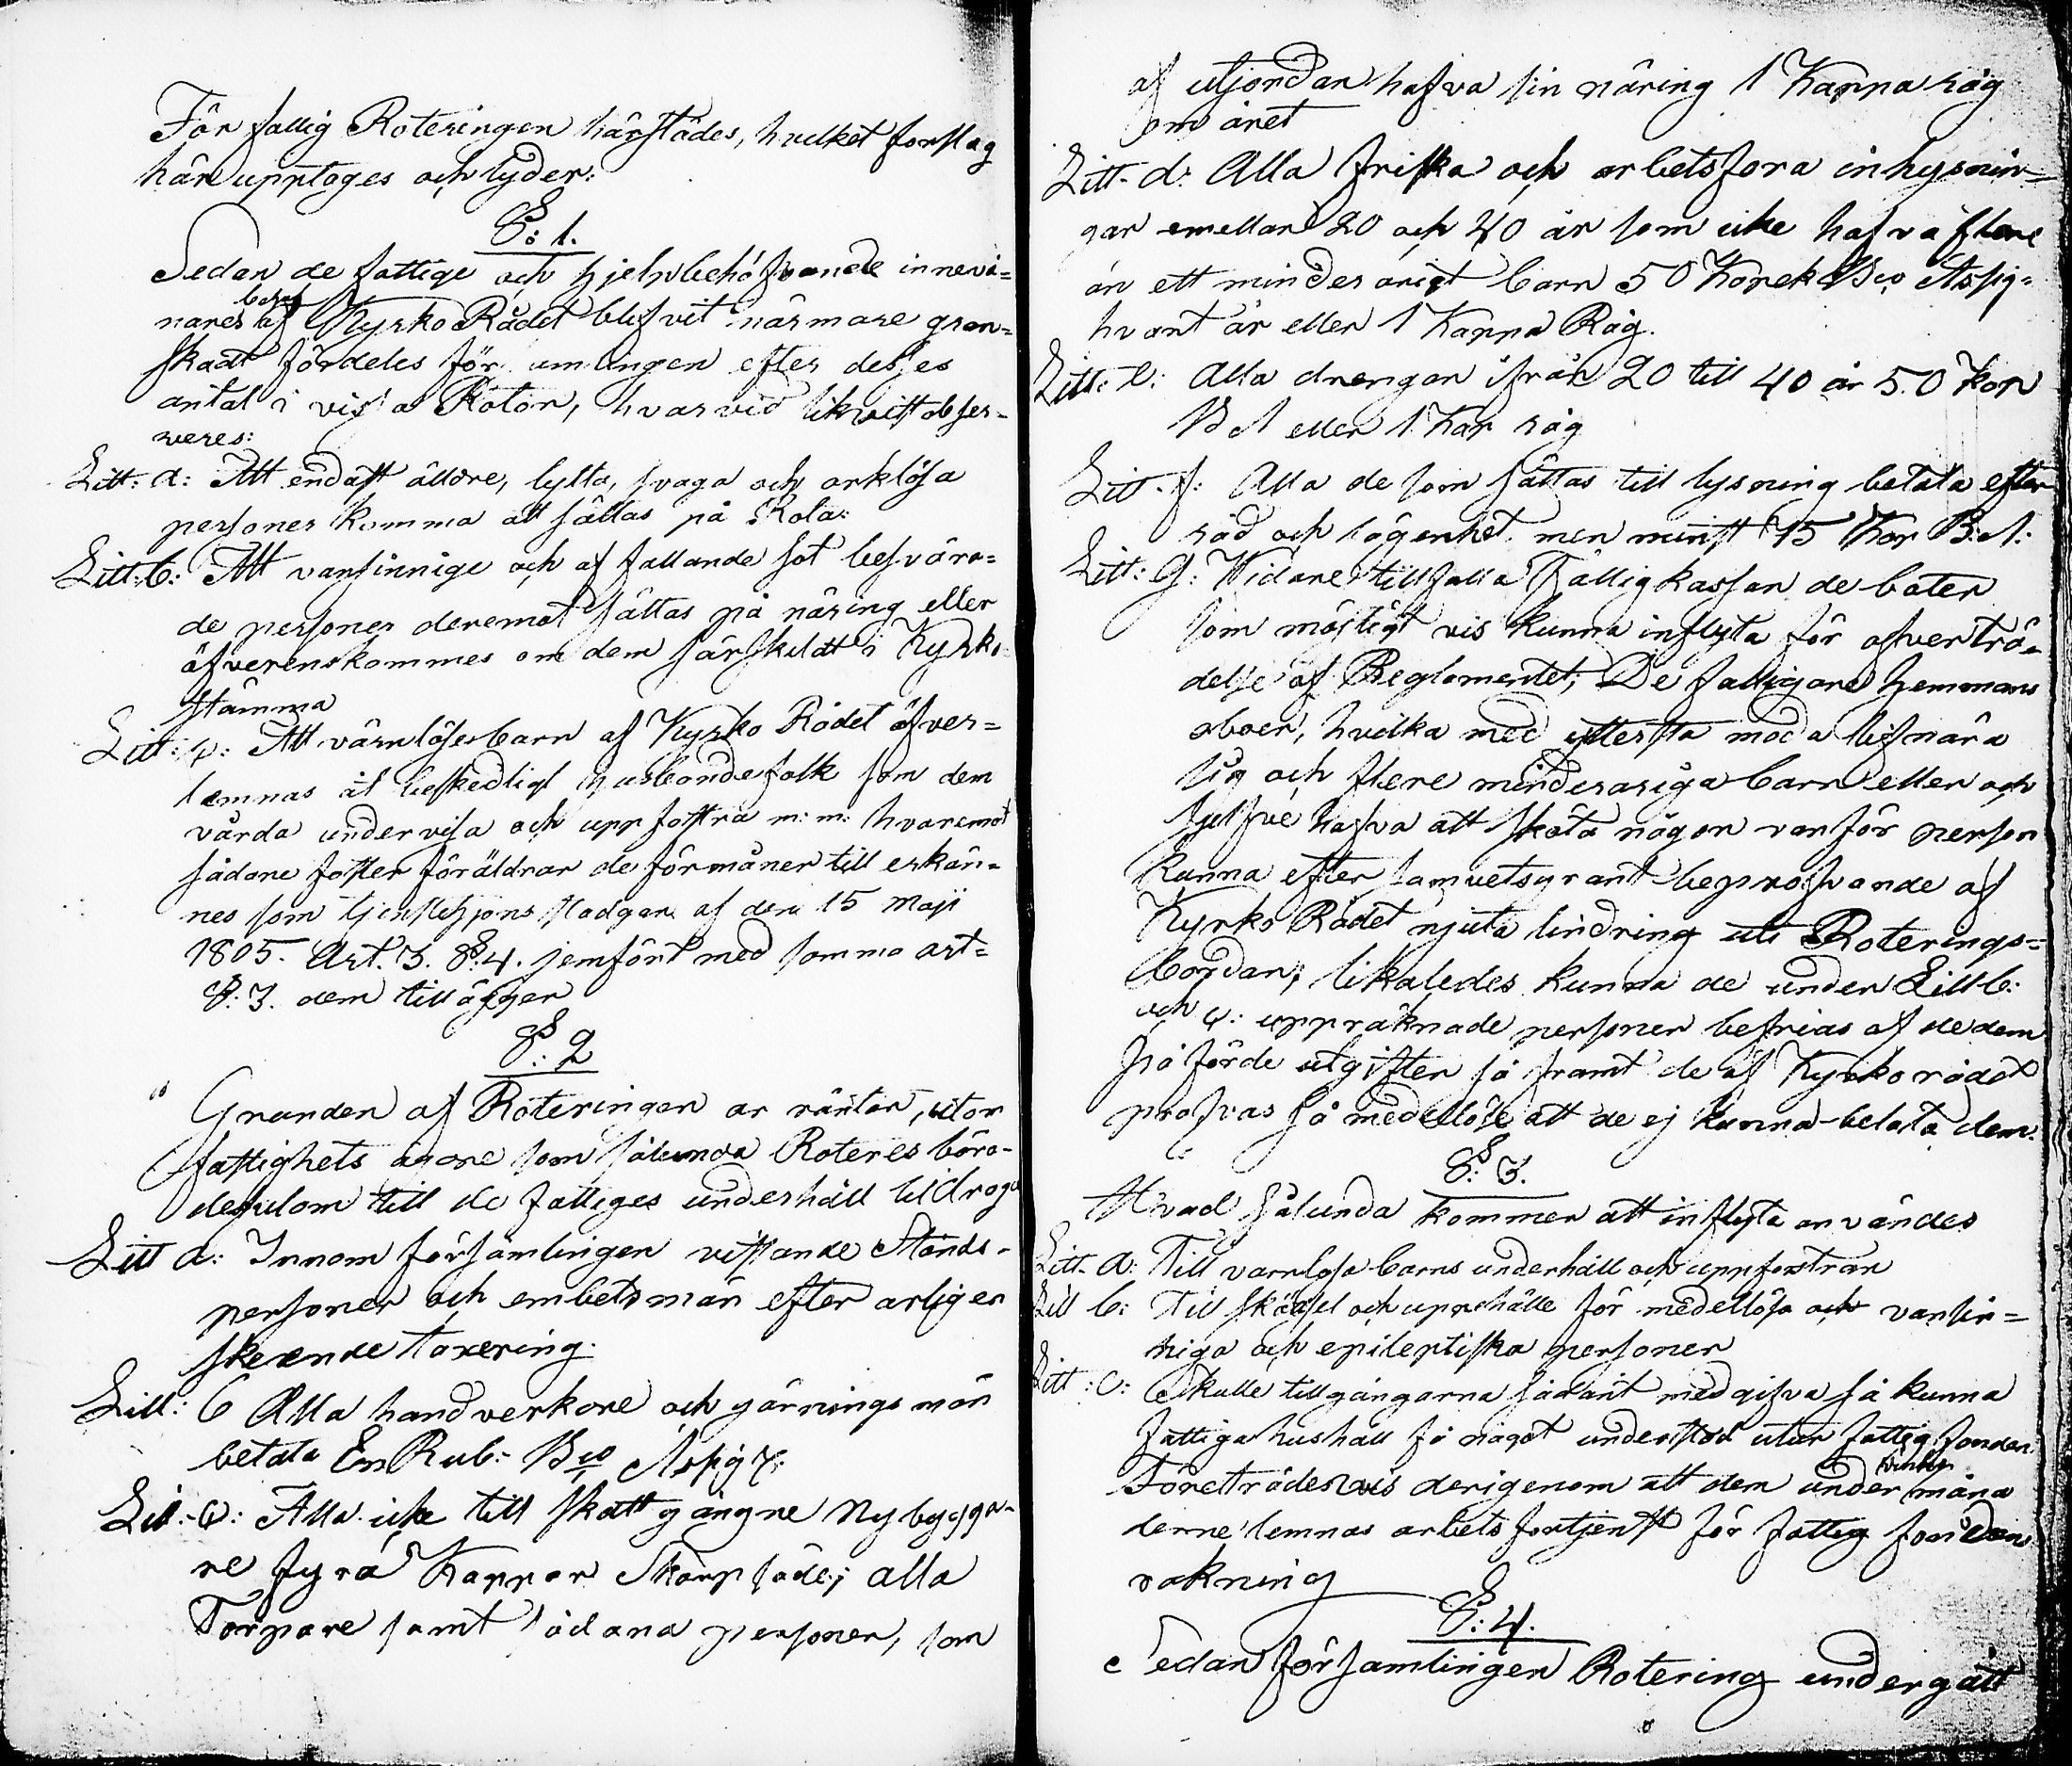 För fattig Roteringen härstädes, hvilket forslag
här upptages och lyder:
§: 1.
Sedan de fattige och hjelpbehöfvande inneva=
nares behof af Kyrko Rådet blifvit närmare gran=
skadt fördeles för amlingen efter desses
antal i vissa Rotor, hvarvid likvist obser=
veres:
Litt: a: Att endast äldre, lytta, svaga och orklösa
personer komma att sättas på Rota:
Litt: b: Att vansinnige och af fallande sot besvära=
de personer deremot sättas på näring eller
öfverenskommes om dem särskildt i Kyrko
stämma
Litt: c: Att värnlöse barn af Kyrko Rådet öfver=
lemnas åt beskedligt husbondefolk som dem
vårda undervisa och uppfostra m: m: hvaremot
sådane foster föräldrar de förmåner till erkän=
nes som tjenstehjons stadgan af den 15 Maji
1805. Art. 3. §: 4. jemfört med samma art=
§: 3. dem tillägger
§: 2
Grunden af Roteringen ar räntor, utom
fastighets ägare som sålunda Roteres böra
dessutom till de fattiges underhåll tildraga
Litt a: Innom församlingen vistande Stånds=
personer och embetsmän efter arligen
skeende taxering.
Litt: b Alla handverkare och gärningsmän
betala En Rub: Bco Assig:
Litt: c: Alla icke till skatt gångne Nybygga=
re fyra Kappar Skarpsäde; alla
Torpare samt sådana personer, som
af utjordan hafva sin näring 1 Kappa råg
om året
Litt. d: Alla friska och arbetsfora inhysnin=
gar emellan 20 och 40 år som icke hafva flere
än ett minderårigt barn 50 Kopek Bco Assig=
hvart år eller 1 Kappa Råg.
Litt: e: Alla drengar ifrån 20 till 40 år 50 Kop
B A eller 1 Kap råg
Litt. f: Alla de som sättas till lysning betala efter
råd och lägenhet men minst 15 Kop B: A:
Litt: g: Vidare tillfalla Fattigkassan de böter
som möjligt vis kunna inflyta för öfverträ=
delse af Reglementet; De fattigare hemmans
åboer, hvilka med yttersta möda lifnära
sig och flere minderariga barn eller och
sjelfve hafva att sköta någon vanför person
kunna efter samvetsgrant bepröfvande af
Kyrko Rådet njuta lindring uti Roterings=
bördan; likaledes kunna de under Litt b:
och c: uppräknade personer befrias af de dem
påförde utgifter så framt de af Kyrkorådet
pröfvas så medellöse att de ej kunna betala dem.
§: 3.
Hvad sålunda kommer att inflyta användes
Litt. a: Till varnlösa barns underhåll och uppfostran
Litt b: Till skötsel och uppehälle för medellösa och vansin=
niga och epileptiska personer
Litt: c: Skulle tillgångarna sådant medgifva så kunna
fattiga hushåll få något understöd utur fattig fonden
Företrädesvis derigenom att dem under vinter måna
derne lemnas arbetsfortjenst för fattig fondens
räkning
§: 4.
Sedan församlingen Rotering undergått